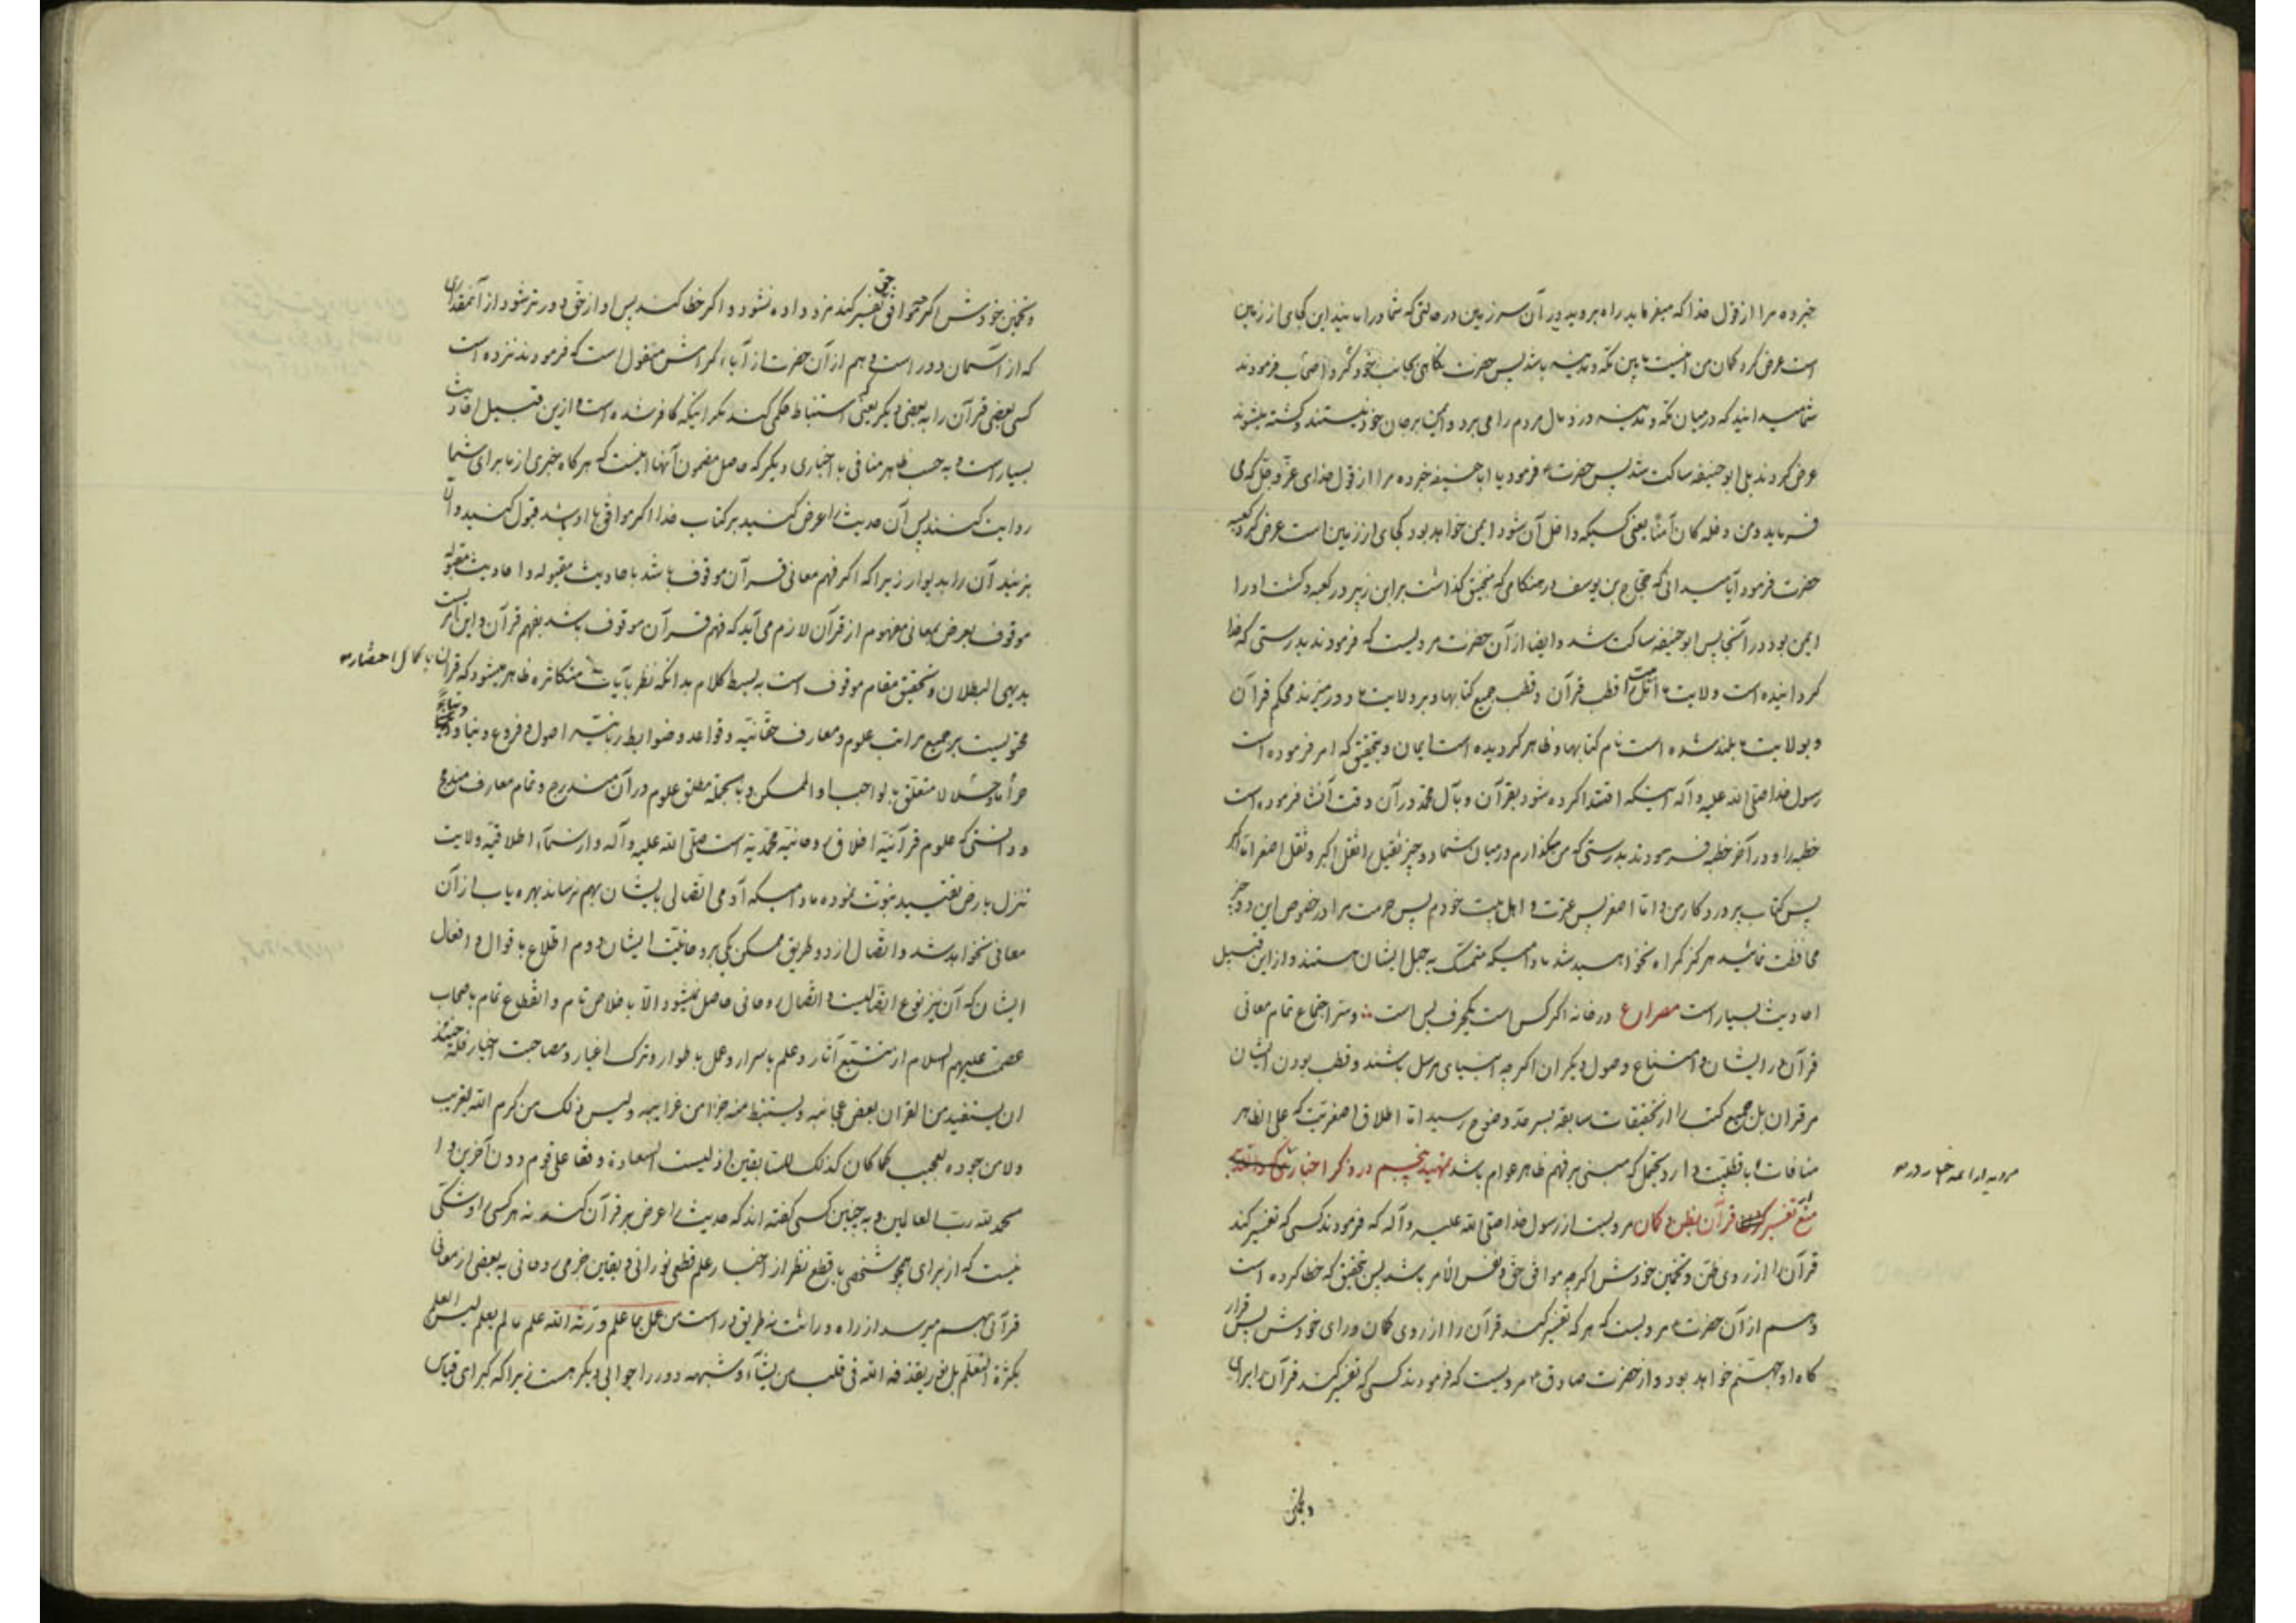 خبر ده مرا از قول خدا که میفرماید راه بروید در آن سرزمین در حالتی که شما در امانید این کجای از زمین
است عرض کرد کمان من اینست مابین مکه و مدینه باشد پس حضرت نکاهی بجانب خود کرد و اصحاب فرمودند
شما میدانید که در میان مکه و مدینه دزد مال مردم را می برد و ایمن بر جان خود نیستند و کشته میشوند
عرض کردند بلی ابو حنیفه ساکت شد پس حضرت فرمود یا ابا حنیفه خبر ده مرا از قول خدای عز و جل که می
فرماید و من دخله کان آمنا یعنی کسیکه داخل آن شود ایمن خواهد بود کجای از زمین است عرض کرد کعبه
حضرت فرمود آیا میدانی که حجاج بن یوسف در هنکامی که منجنیق کذاشت بر ابن زبیر در کعبه و کشت او را
ایمن بود در آنجا پس ابو حنیفه ساکت شد و ایضا از آن حضرت مرویست که فرمودند بدرستی که خدا
کردانیده است ولایت ما اهل بیت را قطب قرآن و قطب جمیع کتابها و بر ولایت ما دور میزند محکم قرآن
و بولایت ما بلند شده است نام کتابها و ظاهر کردیده است ایمان و بتحقیق که امر فرموده است
رسول خدا صلی الله علیه و آله اینکه اقتدا کرده شود بقرآن و بآل محمد در آن وقت انشا فرموده است
خطبه را و در آخر خطبه فرمودند بدرستی که من میکذارم در میان شما دو چیز ثقیل ثقل اکبر و ثقل اصغر اما اکبر
پس کتاب پروردکار من و اما اصغر پس عترت و اهل بیت خودم پس حرمت مرا در خصوص این دو چیز
محافظت نمائید هرکز کمراه نخواهید شد مادامیکه متمسک به حبل ایشان هستند و از این قبیل
احادیث بسیار است مصراع در خانه اکر کس است یکحرف بس است و سر اجتماع تمام معانی
قرآن در ایشان و امتناع وصول دیکران اکر چه انبیای مرسل باشند و قطب بودن ایشان
مر قران بل جمیع کتب را از تحقیقات سابقه بسر حد وضوح رسید اما اطلاق اصغریت که علی الظاهر
منافات با قطبیت دارد یحتمل که مبنی بر فهم ظاهر عوام باشد تمهید پنجم در ذکر اخباری که
مرویه از ائمه
منع تفسیر قرآن بظن و کمان مرویست از رسول خدا صلی الله علیه و آله که فرمودند کسی که تفسیر کند
قرآن را از روی ظن و تخمین خودش اکر چه موافق حق و نفس الأمر باشد پس بتحقیق که خطا کرده است
و هم از آن حضرت مرویست که هر که تفسیر کند قرآن را از روی کمان و رای خودش پس قرار
کاه او جهنم خواهد بود و از حضرت صادق مرویست که فرمودند کسی که تفسیر کند قرآن را برای
و تخمین خودش اکر موافق حق تفسیر کند مزد داده نشود و اکر خطا کند پس او از حق دورتر شود از آنمقداری
که از آسمان دور است و هم از آن حضرت از آباء کرامش منقول است که فرمودند نزده است
کسی بعضی قرآن را به بعضی دیکر یعنی استنباط حکمی کند مکر اینکه کافر شده است و ازین قبیل احادیث
بسیار است و به حسب ظاهر منافی با اخباری دیکر که حاصل مضمون آنها اینست که هرکاه خبری از ما برای شما
روایت کنند پس آن حدیث را عرض کنید بر کتاب خدا اکر موافق با او باشد قبول کنید و الا
بزنید آن را بدیوار زیرا که اکر فهم معانی قرآن موقوف باشد باحادیث مقبوله و احادیث مقبوله
موقوف بعرض بمعانی مفهوم از قرآن لازم می آید که فهم قرآن موقوف باشد بفهم قرآن و این امریست
بدیهی البطلان و تحقیق مقام موقوف است به بسط کلام بدانکه نظر بآیات متکاثره ظاهر میشود که قرآن با کمال اختصار
محتویست بر جمیع مراتب علوم و معارف حقانیه و قواعد و ضوابط ربانیه اصول و فروع و دنیا و
حراما و حلالا متعلق بالواجب او الممکن و بالجمله مطلق علوم در آن مندرج و تمام معارف مندمج
و دانستی که علوم قرآنیه اخلاق روحانیه محمدیه است صلی الله علیه و آله و از سماء اطلاقیه ولایت
تنزل بارض تقیید نبوت نموده مادامیکه آدمی اتصالی بایشان بهم نرساند بهره یاب از آن
معانی نخواهد شد و اتصال از دو طریق ممکن یکی بروحانیت ایشان دوم اطلاع باقوال و افعال
ایشان که آن نیز نوع اتصالیست و اتصال روحانی حاصل نمیشود الا باخلاص تام و انقطاع تمام باصحاب
عصمت علیهم السلام از تتبع آثار و علم باسرار و عمل باطوار و ترک اغیار و مصاحبت اخیار فله حینئذ
ان یستفید من القران بعض عجائبه و یستنبط منه جزا من غرایبه و لیس ذلک من کرم الله بغریب
و لا من جوده بعجیب کما کان کذلک للسابقین اذ لیست السعادة وقفا علی قوم دون آخرین و ا
لحمد لله رب العالمین و به چنین کسی کفته اند که حدیث را عرض بر قرآن کند نه هر کسی او شکی
نیست که از برای همچو شخصی با قطع نظر از اخبار علم قطعی نورانی و یقین جزمی روحانی به بعضی از معانی
قرآنی بهم میرسد از راه وراثت نه طریق دراست من عمل بما علم ورثه الله علم مالم یعلم لیس العلم
بکثرة التعلم بل نور یقذفه الله فی قلب من یشآء و شبهه دور را جوابی دیکر هست زیرا که کبرای قیاس